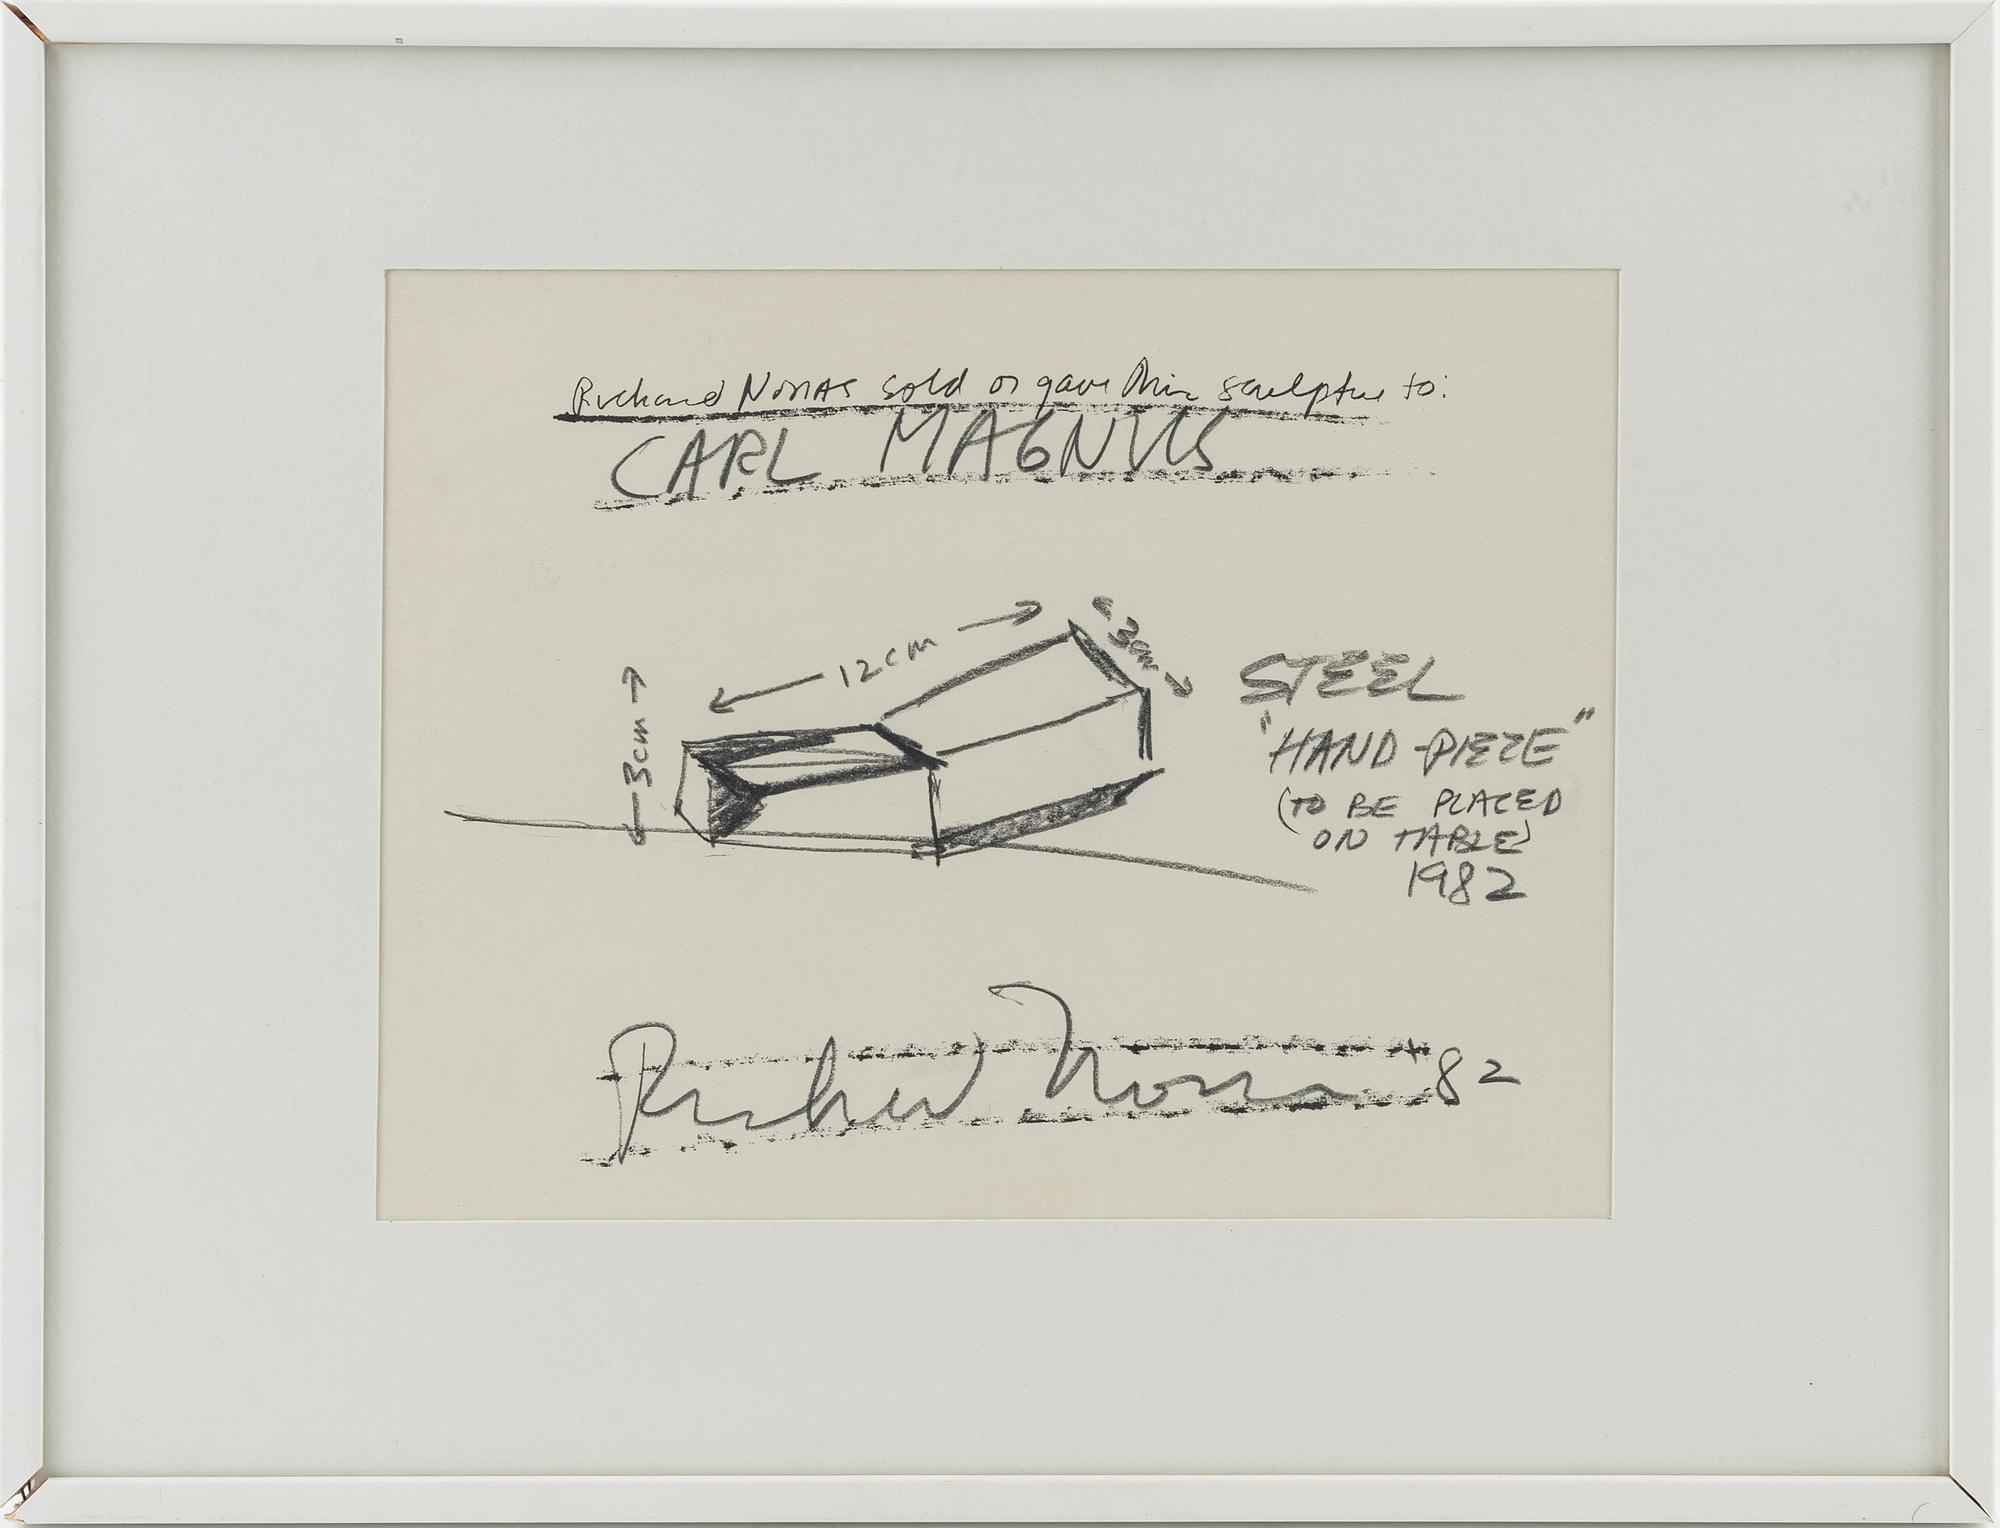 Richard Nonas sold or gave this sculpture to:
CARL MAGNUS
12cm
3cm
3cm
STEEL
"HAND-PIECE"
(TO BE PLACED
ON TABLE)
1982
Richard Nonas '82